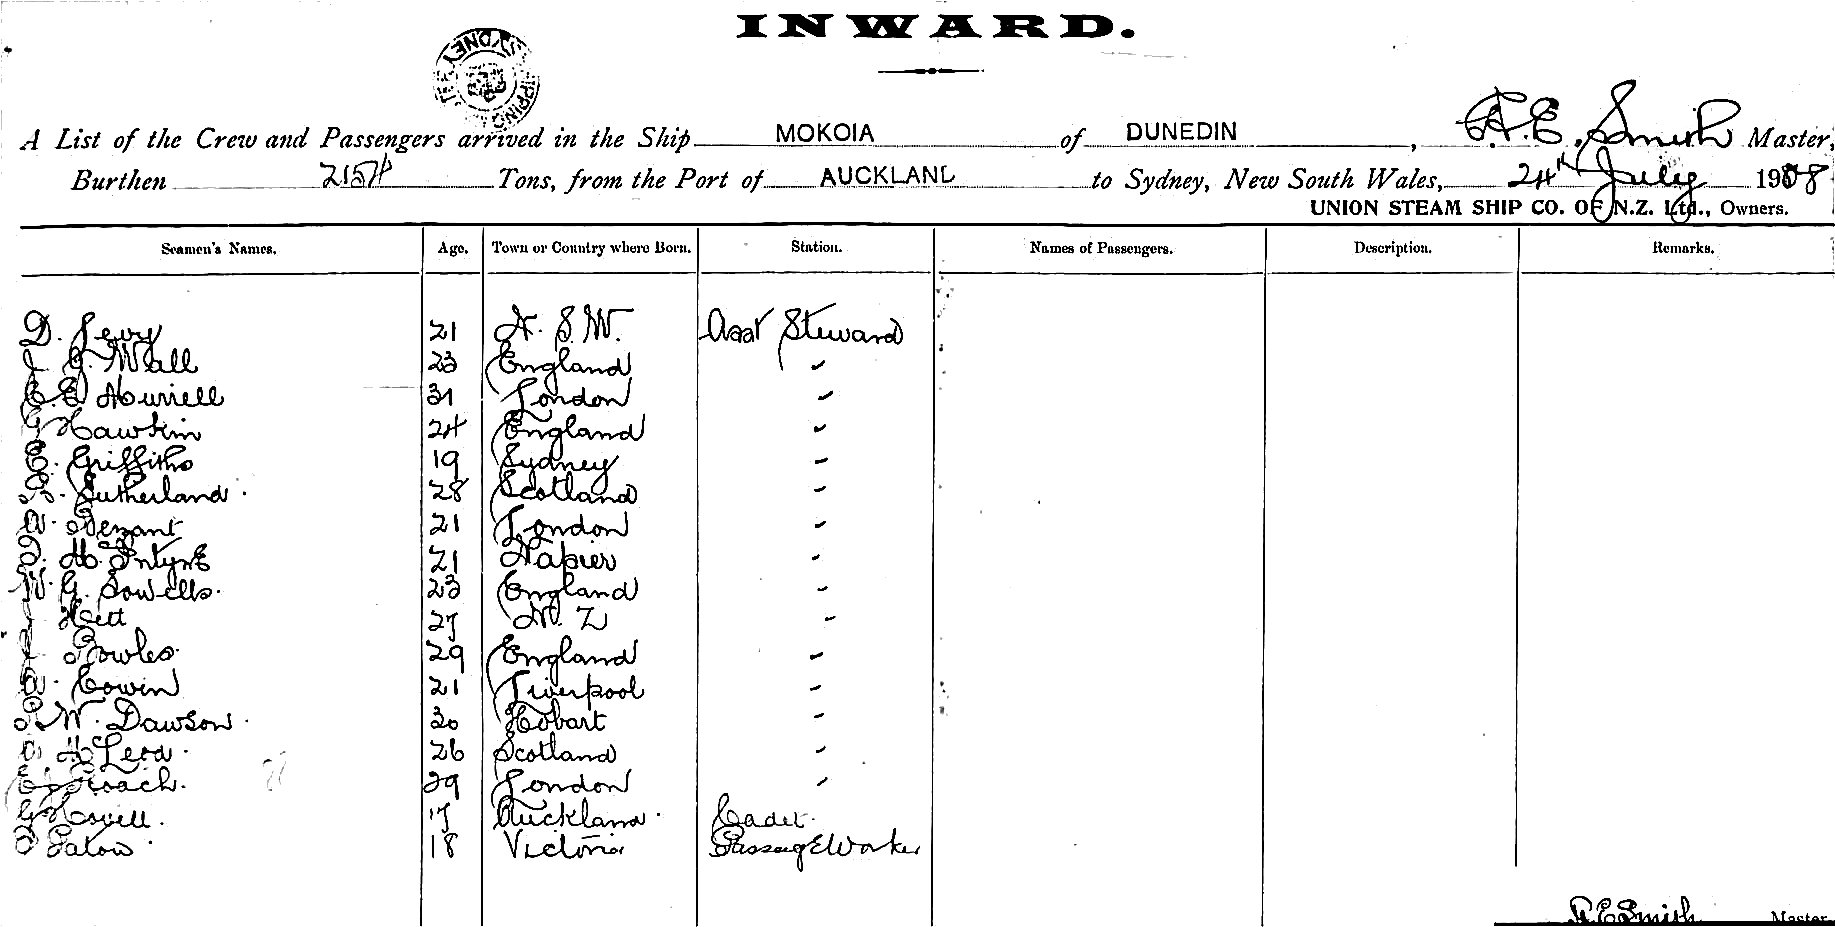 INWARD.
SYDNEY SHIPPING
A List of the Crew and Passengers arrived in the Ship MOKOIA of DUNEDIN, A.E. Smith Master,
Burthen 2154 Tons, from the Port of AUCKLAND to Sydney, New South Wales, 24th July 1908
UNION STEAM SHIP CO. OF N.Z. Ltd., Owners.
Seamen's Names. Age. Town or Country where Born. Station. Names of Passengers. Description. Remarks.
D. Levy 21 N. S. W. Asst Steward
J G. Wall 23 England "
C. E Hurrell 31 London "
G Hawkin 24 England "
E. Griffiths 19 Sydney "
Sutherland 28 Scotland "
W. Tenant 21 London "
D. McIntyre 21 Napier "
W. G. Sowells. 23 England "
J Hett 27 N. Z "
J Bowles 29 England "
Cowin 21 Liverpool "
W. Dawson 30 Hobart "
McLeod 26 Scotland "
Roach. 29 London "
G Hovell. 17 Auckland Cadet.
Eaton 18 Victoria Passage Worker
A.E Smith Master